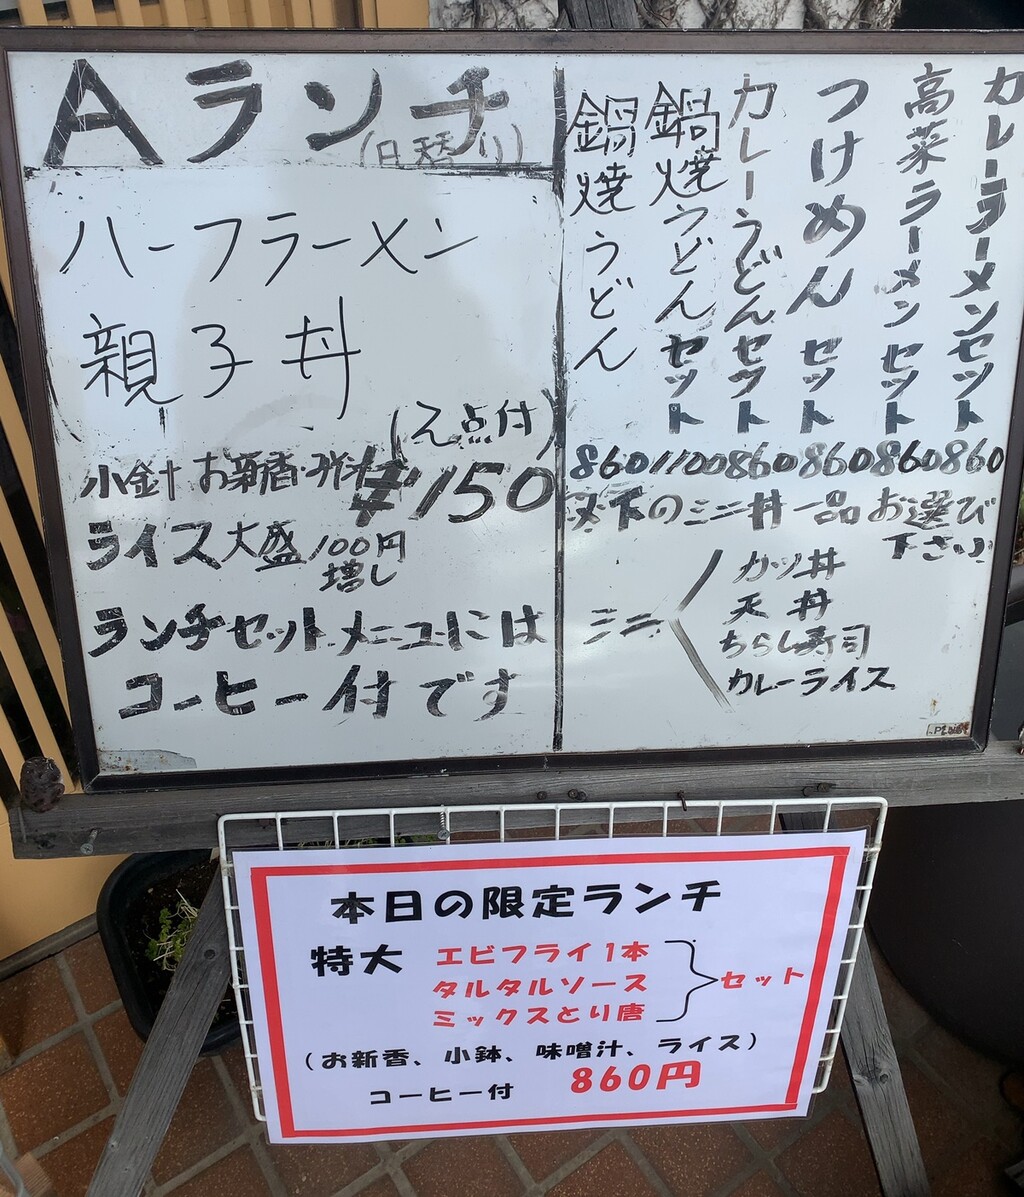 Aランチ
(日替り)
ハーフラーメン
親子丼
(2点付)
小針 お新香・みそ汁
¥1150
ライス大盛100円
増し
ランチセットメニューには
コーヒー付です
カレーラーメンセット 860
高菜ラーメンセット 860
つけめんセット 860
カレーうどんセット 860
鍋焼うどんセット 1100
鍋焼うどん 860
以下のミニ丼一品お選び
下さい
ミニ
カツ丼
天丼
ちらし寿司
カレーライス
本日の限定ランチ
特大 エビフライ1本
タルタルソース
ミックスとり唐
セット
(お新香、小鉢、味噌汁、ライス)
コーヒー付 860円